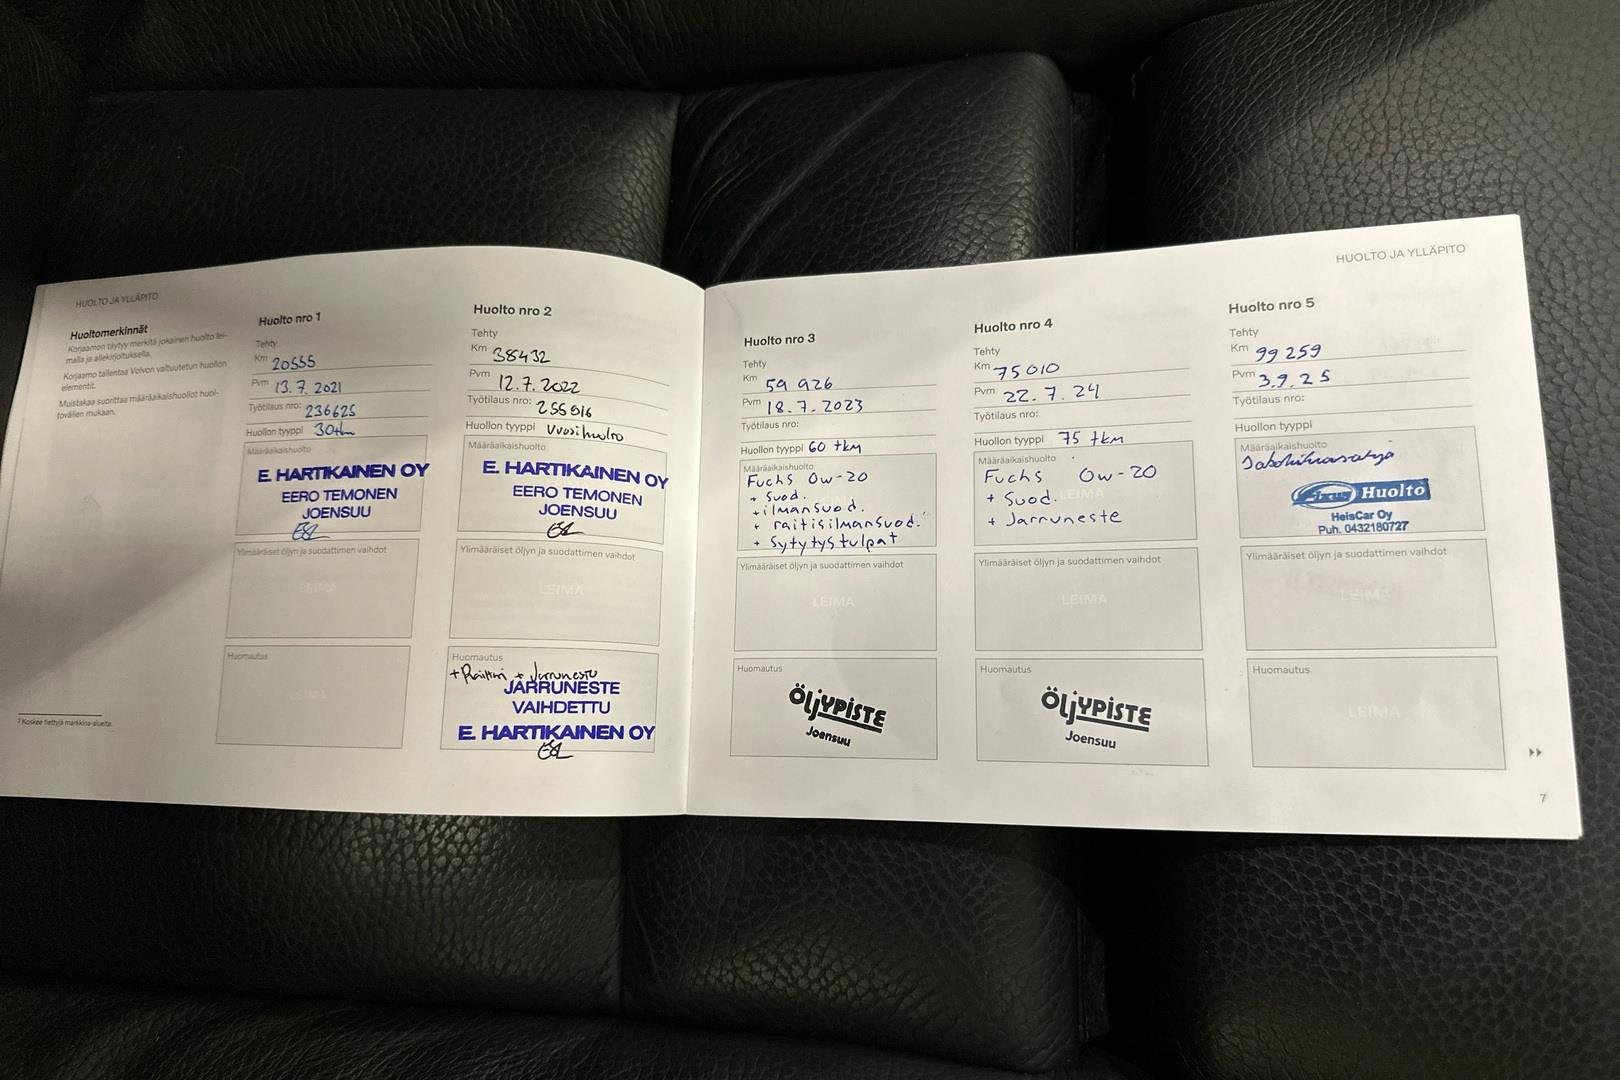 HUOLTO JA YLLÄPITO
Huoltomerkinnät
Korjaamon täytyy merkitä jokainen huolto lei-
malla ja allekirjoituksella.
Korjaamo tallentaa Volvon valtuutetun huollon
elementit.
Muistakaa suorittaa määräaikaishuollot huol-
tovälien mukaan.
Koskee tiettyjä markkina-alueita.
Huolto nro 1
Tehty
Km 20555
Pvm 13.7.2021
Työtilaus nro: 236625
Huollon tyyppi 30tkm
Määräaikaishuolto
E. HARTIKAINEN OY
EERO TEMONEN
JOENSUU
Ylimääräiset öljyn ja suodattimen vaihdot
LEIMA
Huomautus
LEIMA
Huolto nro 2
Tehty
Km 38432
Pvm 12.7.2022
Työtilaus nro: 255016
Huollon tyyppi Vuosihuolto
Määräaikaishuolto
E. HARTIKAINEN OY
EERO TEMONEN
JOENSUU
Ylimääräiset öljyn ja suodattimen vaihdot
LEIMA
Huomautus
+ Jarruneste
JARRUNESTE
VAIHDETTU
E. HARTIKAINEN OY
Huolto nro 3
Tehty
Km 59 926
Pvm 18.7.2023
Työtilaus nro:
Huollon tyyppi 60 tkm
Määräaikaishuolto
Fuchs 0w-20
+ Suod.
+ilmansuod.
+ raitisilmansuod.
+ Sytytystulpat
Ylimääräiset öljyn ja suodattimen vaihdot
LEIMA
Huomautus
ÖLJYPISTE
Joensuu
HUOLTO JA YLLÄPITO
Huolto nro 4
Tehty
Km 75010
Pvm 22.7.24
Työtilaus nro:
Huollon tyyppi 75 tkm
Määräaikaishuolto
Fuchs 0w-20
+ Suod.
LEIMA
+ Jarruneste
Ylimääräiset öljyn ja suodattimen vaihdot
LEIMA
Huomautus
ÖLJYPISTE
Joensuu
Huolto nro 5
Tehty
Km 99 259
Pvm 3.9.25
Työtilaus nro:
Huollon tyyppi
Määräaikaishuolto
Huolto
HeisCar Oy
Puh. 0432180727
Ylimääräiset öljyn ja suodattimen vaihdot
LEIMA
Huomautus
LEIMA
7